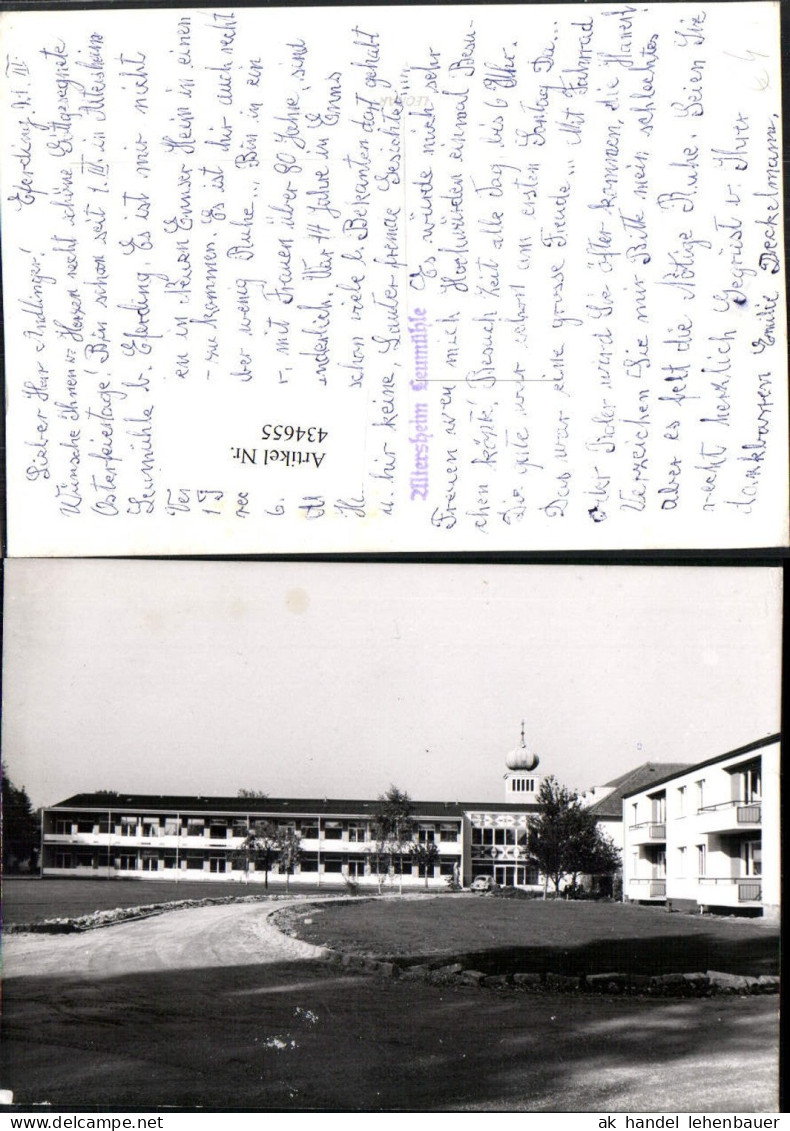 Eferding 21. III.
Lieber Herr Andlinger!
Wünsche Ihnen v. Herzen recht schöne Gottgesegnete
Osterfeiertage! Bin schon seit 1. III. in Altersheim
Leumühle b. Eferding. Es ist mir nicht
Ver en in Neuen Ennser Heim in einen
1 J - zu kommen. Es ist hir auch recht
rec ber wenig Ruhe... Bin in ein
6. r, mit Frauen über 80 Jahre, sind
M änderlich. War 14 Jahre in Enns
Ha schon viele b. Bekanten dort gehabt
u. hir keine, Lauter fremde Gesichter!...
Es würde mich sehr
Freuen wen mich Hochwürden einmal Besu-
chen könt! Besuch Zeit alle Tag, bis 6 Uhr.
Die gute war schon am ersten Sontag Da...
Das war eine grosse Freude... Mit Fahrrad
oder Roler wird Sie öfter kommen, die
Verzeichen Sie mir Bitte mein schlechtes
aber es felt die Nötige Ruhe. Seien Sie
recht herzlich Gegrüst v. Ihrer
dankbaren Emilie Deckelmann,
Altersheim Leumühle
Artikel Nr.
434655
ak handel lehenbauer